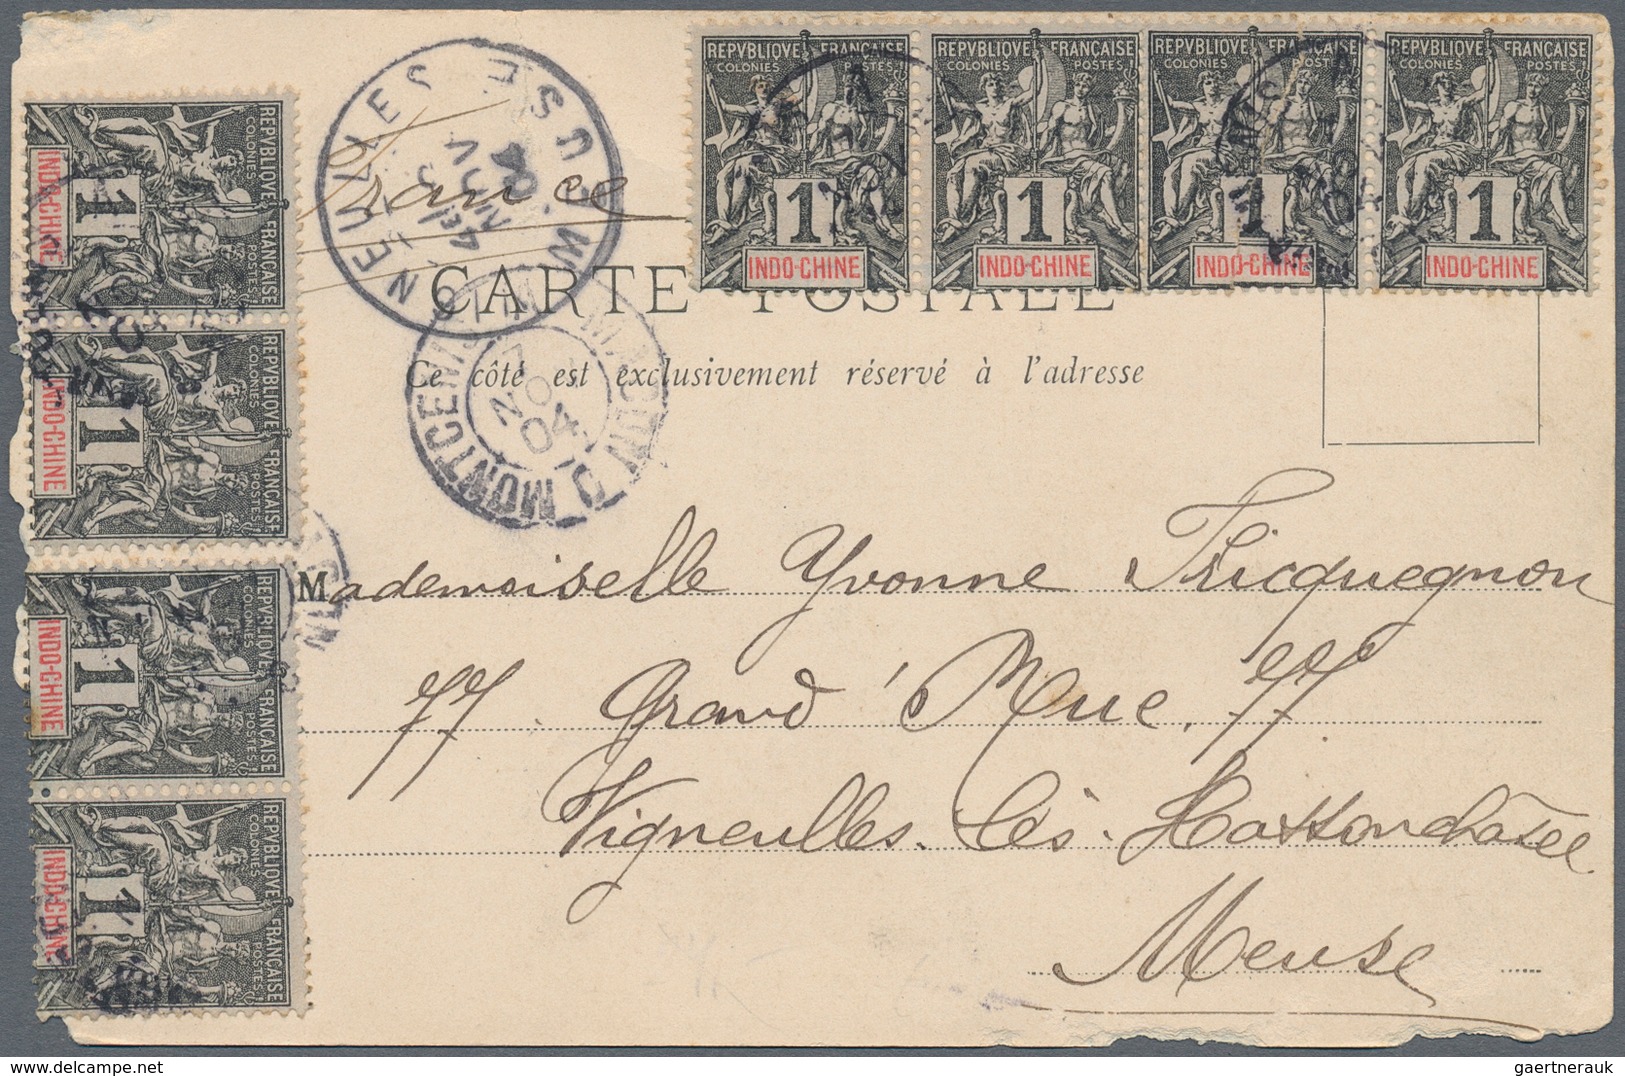 REPVBLIQVE FRANÇAISE
COLONIES POSTES
1
INDO-CHINE
REPVBLIQVE FRANÇAISE
COLONIES POSTES
1
INDO-CHINE
REPVBLIQVE FRANÇAISE
COLONIES POSTES
1
INDO-CHINE
REPVBLIQVE FRANÇAISE
COLONIES POSTES
1
INDO-CHINE
REPVBLIQVE FRANÇAISE
COLONIES POSTES
1
INDO-CHINE
REPVBLIQVE FRANÇAISE
COLONIES POSTES
1
INDO-CHINE
REPVBLIQVE FRANÇAISE
COLONIES POSTES
1
INDO-CHINE
REPVBLIQVE FRANÇAISE
COLONIES POSTES
1
INDO-CHINE
MEUSE
NOV
04
France
CARTE POSTALE
7
NO
04
Ce côté est exclusivement réservé à l'adresse
Mademoiselle Yvonne Fricquegnon
77 Grand' Rue. 77
Vigneulles-lès-Hattonchâtel
Meuse
gaertnerauk